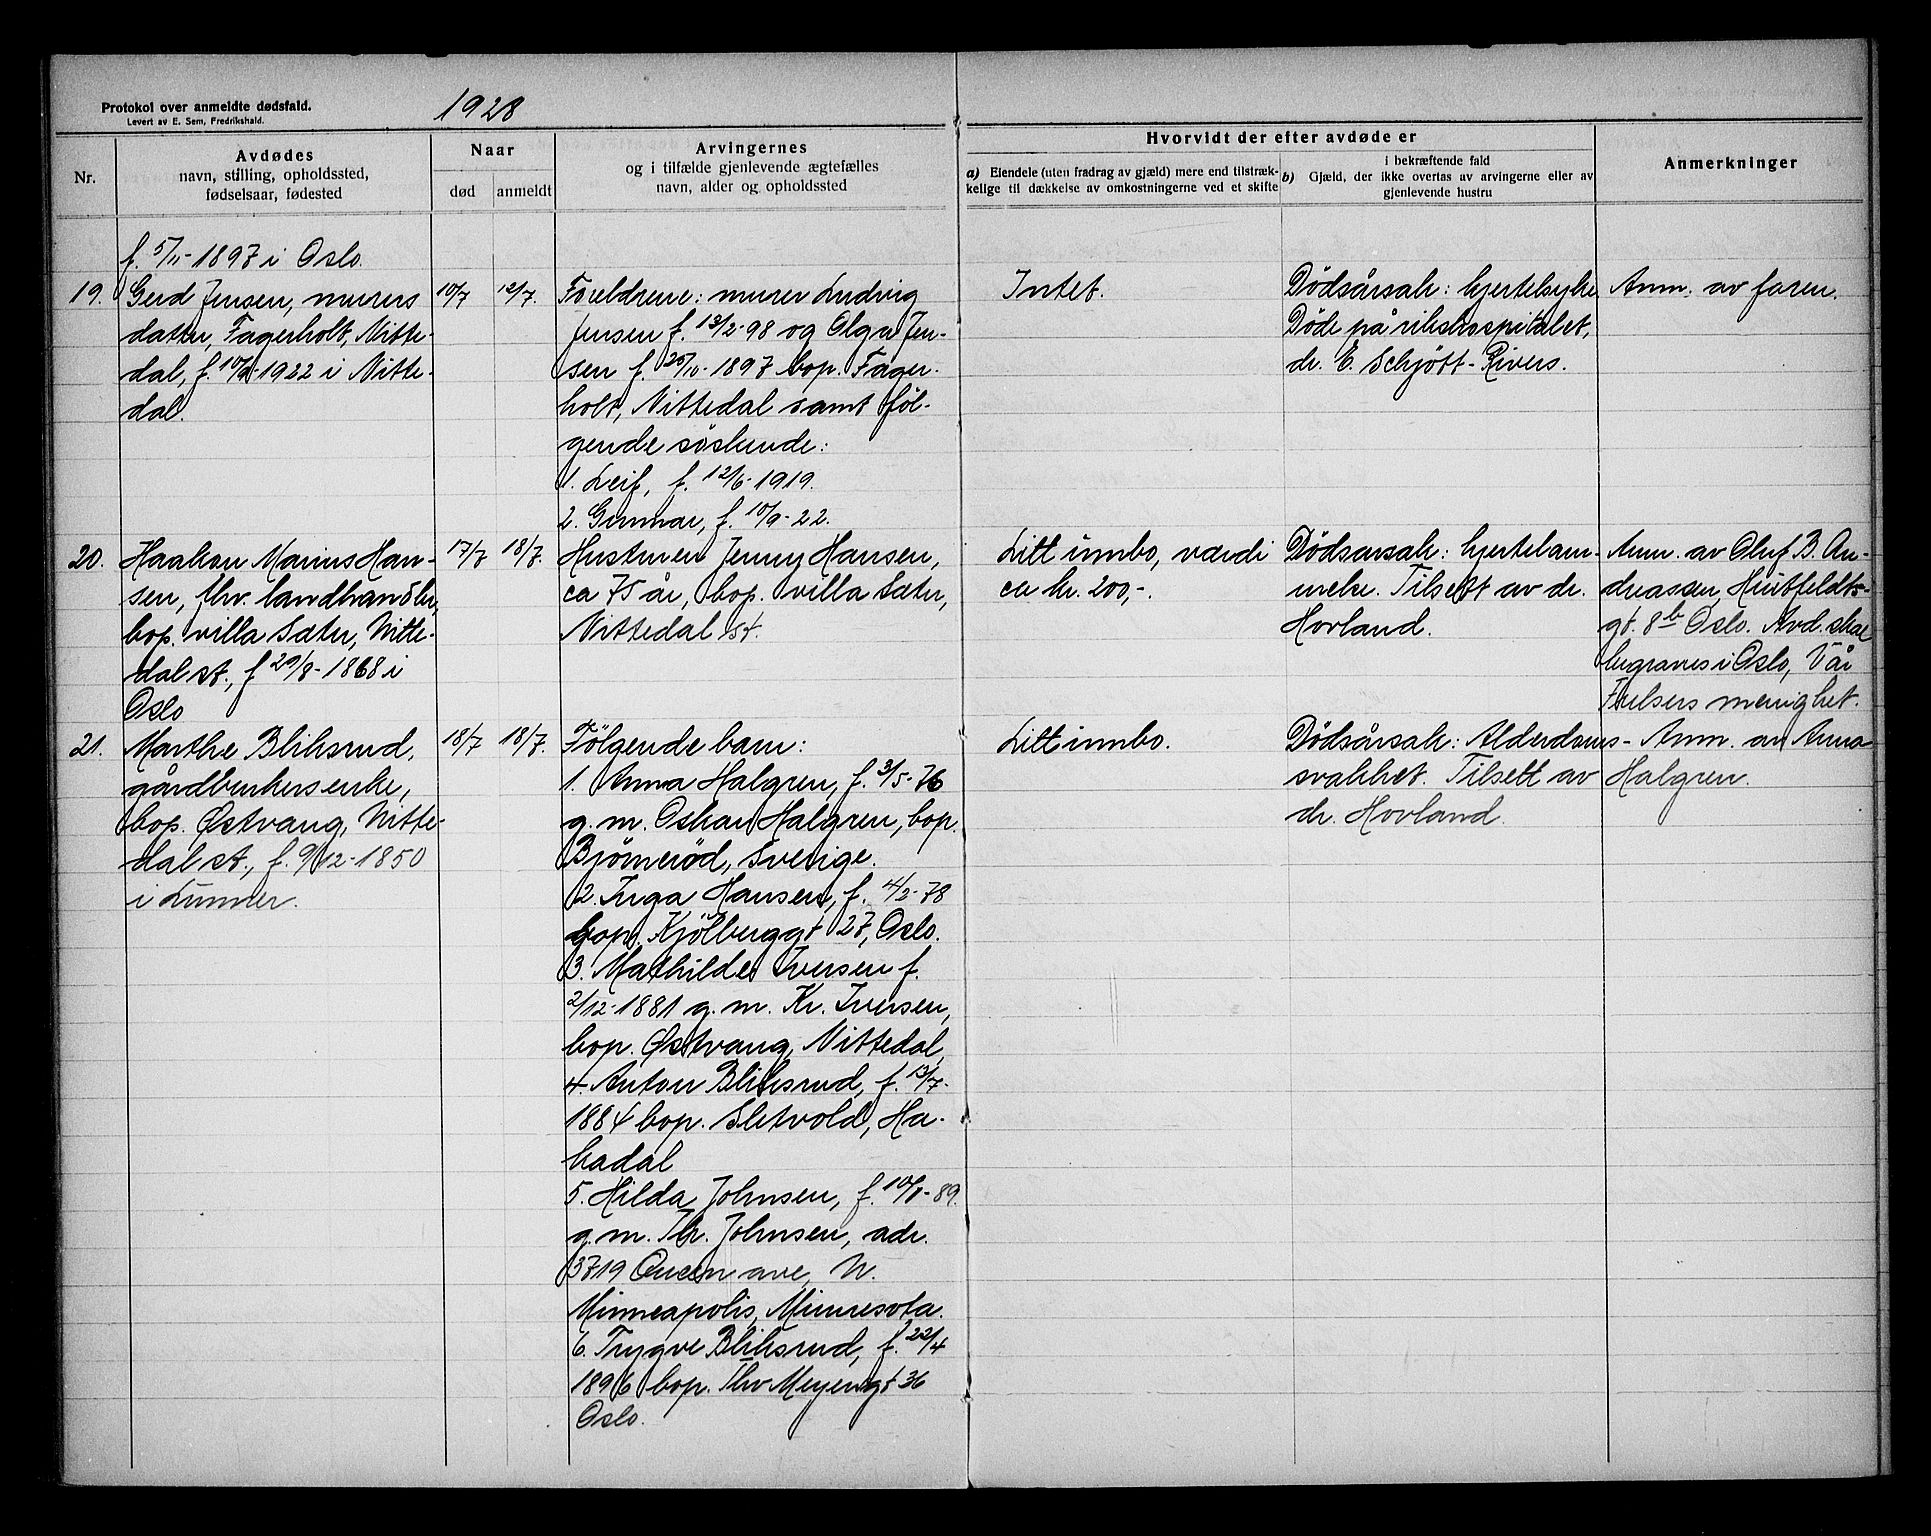 Protokol over anmeldte dødsfald.
Levert av E. Sem, Fredrikshald.
1928
Nr.
Avdødes
navn, stilling, opholdssted,
fødselsaar, fødested
Naar
død
anmeldt
Arvingernes
og i tilfælde gjenlevende ægtefælles
navn, alder og opholdssted
Hvorvidt der efter avdøde er
a) Eiendele (uten fradrag av gjæld) mere end tilstræk-
kelige til dækkelse av omkostningerne ved et skifte
i bekræftende fald
b) Gjæld, der ikke overtas av arvingerne eller av
gjenlevende hustru
Anmerkninger
f. 5/11-1897 i Oslo.
19.
Gerd Jensen, murers
datter, Fagerholt, Nitte-
dal, f. 10/9-1922 i Nitte-
dal.
10/7
12/7.
Foreldrene: murer Ludvig
Jensen f. 13/2-98 og Olga Jen-
sen f. 25/10-1897 bop. Fager-
holt, Nittedal samt føl-
gende søskende:
1. Leif, f. 12/6-1919.
2. Gunnar, f. 10/9-22.
Intet.
Dödsårsak: hjertesyke
Döde på rikshospitalet,
dr. E. Schjött-Rivers.
Anm. av faren.
20.
Haakon Marius Han-
sen, fhv. landhandler,
bop. villa Sæter, Nitte-
dal st., f 29/8-1868 i
Oslo
17/7
18/7.
Hustruen Jenny Hansen,
ca 75 år, bop. villa Sæter,
Nittedal st.
Litt innbo, værdi
ca kr. 200,-.
Dödsårsak: hjertelam-
melse. Tilsett av dr.
Hovland.
Anm. av Oluf B. An-
dreassen, Huitfeldts-
gt. 8b Oslo. Avd. skal
begraves i Oslo, Vår
Frelsers menighet.
21.
Marthe Bliksrud,
gårdbrukerenke,
bop. Østvang, Nitte-
dal st., f. 9/12-1850
i Lunner.
18/7
18/7.
Følgende barn:
1. Anna Halgren, f. 3/5-76
g.m. Oskar Halgren, bop.
Björneröd, Sverige.
2. Inga Hansen, f. 4/2-78
bop. Kjölberggt 27, Oslo.
3. Mathilde Iversen f.
2/12-1881 g.m. Kr. Iversen,
bop. Østvang, Nittedal,
4. Anton Bliksrud, f. 13/7-
1884 bop. Sletvold, Ha-
kadal
5. Hilda Johnsen, f. 10/1-89.
g.m. Th. Johnsen, adr.
3719 Queen ave, N.
Minneapolis, Minnesota.
6. Trygve Bliksrud, f. 22/4
1896 bop. Thv Meyersgt 36
Oslo.
Litt innbo.
Dödsårsak: Alderdoms-
svakhet. Tilsett av
dr. Hovland.
Anm. av Anna
Halgren.